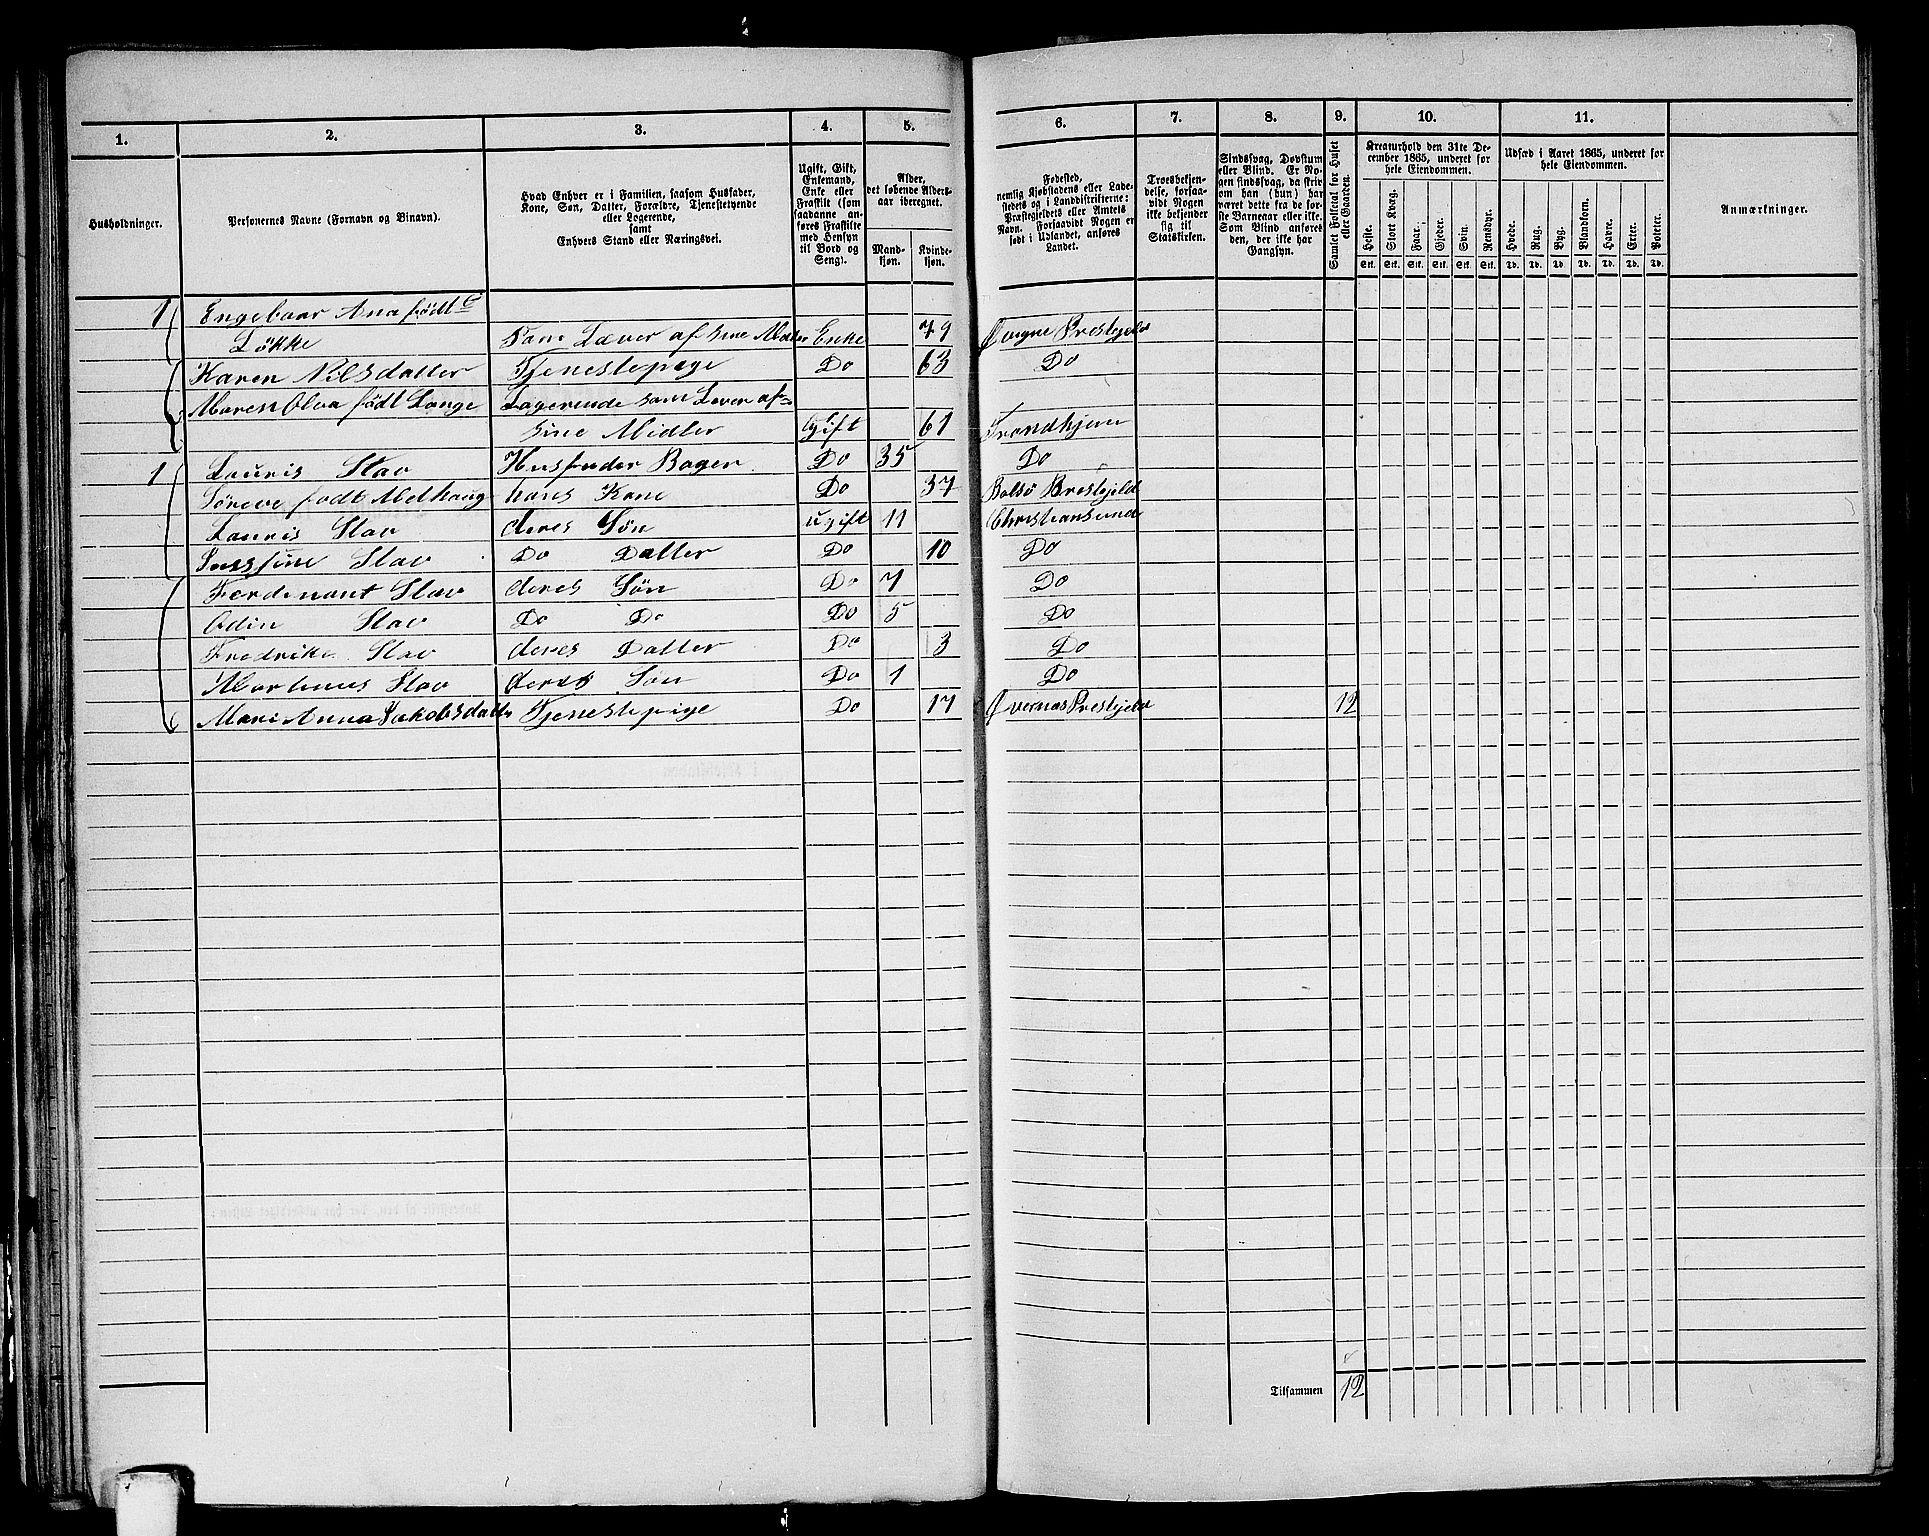 1. 2. 3. 4. 5. 6. 7. 8. 9. 10. 11.
Husholdninger.
Personernes Navne (Fornavn og Binavn).
Hvad Enhver er i Familien, saasom Husfader,
Kone, Søn, Datter, Forældre, Tjenestetyende
eller Logerende,
samt
Enhvers Stand eller Næringsvei.
Ugift, Gift,
Enkemand,
Enke eller
Fraskilt (som
saadanne an-
føres Fraskilte
med Hensyn
til Bord og
Seng).
Alder,
det løbende Alders-
aar iberegnet.
Mand-
kjøn.
Kvinde-
kjøn.
Fødested,
nemlig Kjøbstadens eller Lade-
stedets og i Landdistrikterne:
Præstegjeldets eller Amtets
Navn. Forsaavidt Nogen er
født i Udlandet, anføres
Landet.
Troesbekjen-
delse, forsaa-
vidt Nogen
ikke bekjender
sig til
Statskirken.
Sindssvag, Døvstum
eller Blind. Er No-
gen sindssvag, da skriv
om han (hun) har
været dette fra de før-
ste Barneaar eller ikke.
Som Blind anføres
den, der ikke har
Gangsyn.
Samlet Folketal for Huset
eller Gaarden.
Kreaturhold den 31te De-
cember 1865, underet for
hele Eiendommen.
Heste. Stort Kvæg. Faar. Gjeder. Svin. Rensdyr.
Stk. Stk. Stk. Stk. Stk. Stk.
Udsæd i Aaret 1865, underet for
hele Eiendommen.
Hvede. Rug. Byg. Blandkorn. Havre. Erter. Poteter.
Td. Td. Td. Td. Td. Td. Td.
Anmærkninger.
1 Engebaar Ana født
Løkke Som Læver af sine Midler Enke 79 Qvigne Prestejeld
Karen Nilsdatter Tjenestepige Do 63 Do
Maren Olva født Lange Logerende som Lever af
sine Midler Gift 61 Trondhjem
1 Lauris Stav Husfader Bager Do 35 Do
født Melhaug hans Kone Do 37 Bolsø Prestejeld
Lauris Stav deres Søn ugift 11 Christiansund
Stav Do Datter Do 10 Do
Ferdenant Stav deres Søn Do 7 Do
Odin Stav Do Do Do 5 Do
Fredrike Stav deres Datter Do 3 Do
Martinus Stav deres Søn Do 1 Do
Mari Anna Jakobsdatter Tjenestepige Do 17 Prestejeld 12
Tilsammen 12